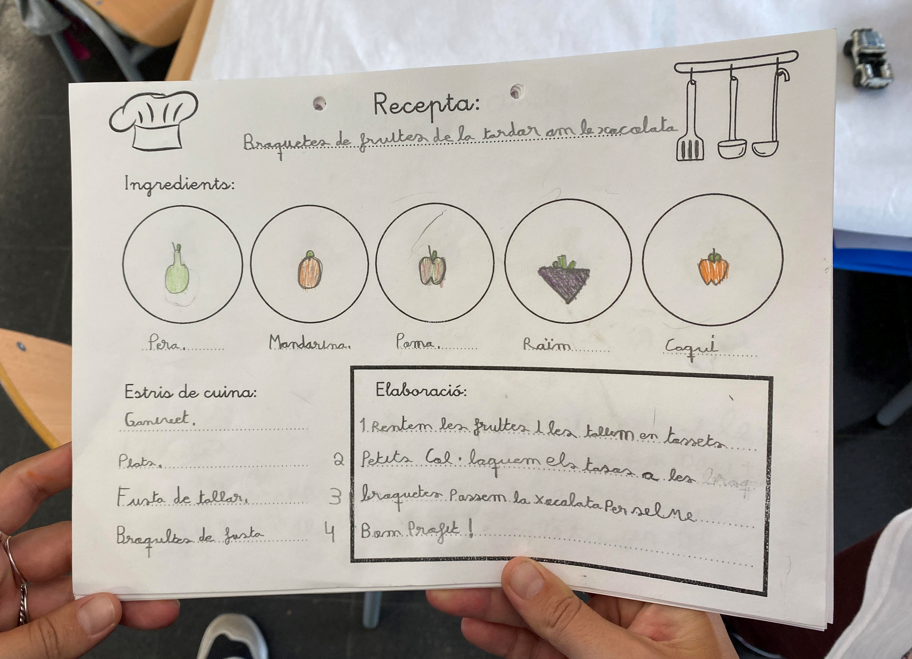 Recepta:
Braquetes de fruites de la tardor am le xacolata
Ingredients:
Pera. Mandarina. Poma. Raïm Caqui
Estris de cuina:
Ganiveet.
Plats.
Fusta de tallar.
Braquites de fusta
Elaboració:
1. Rentem les fruites I les tallem en tassets
2 Petits Col·laquem els tasas a les
3 braquetes Passem la xacalata Per sel Me
4 Bom Profit!